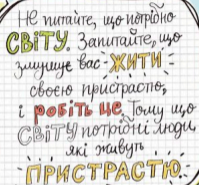 Не питайте, що потрібно
СВІТУ. Запитайте, що
змушує вас ЖИТИ
своєю пристрастю,
і РОБІТЬ ЦЕ. Тому що
СВІТУ потрібні люди,
які живуть
ПРИСТРАСТЮ.